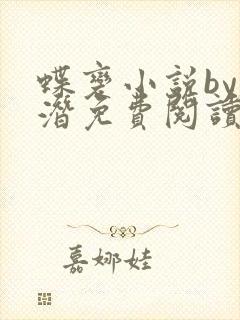 蝶变小说by
潜免费阅读
嘉娜娃